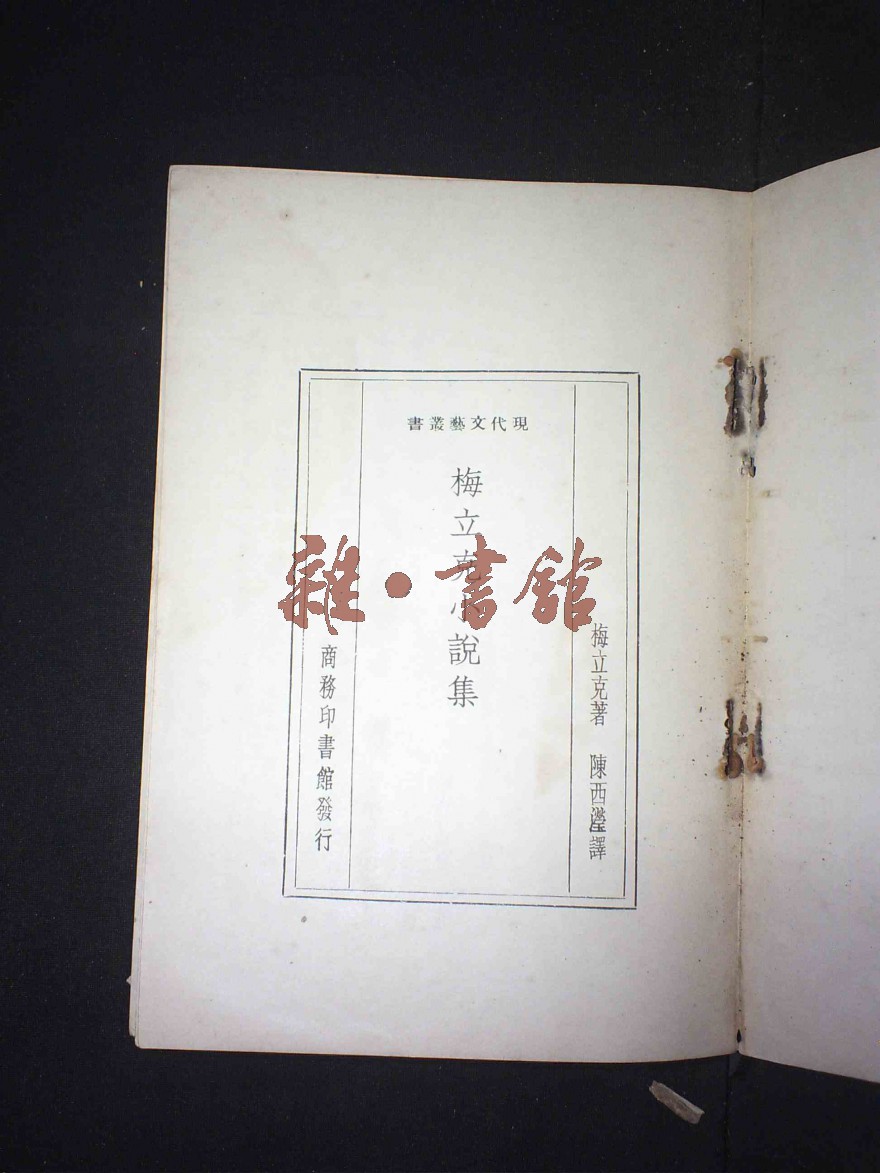 現代文藝叢書
梅立克小說集
梅立克著 陳西瀅譯
商務印書館發行
雜·書館